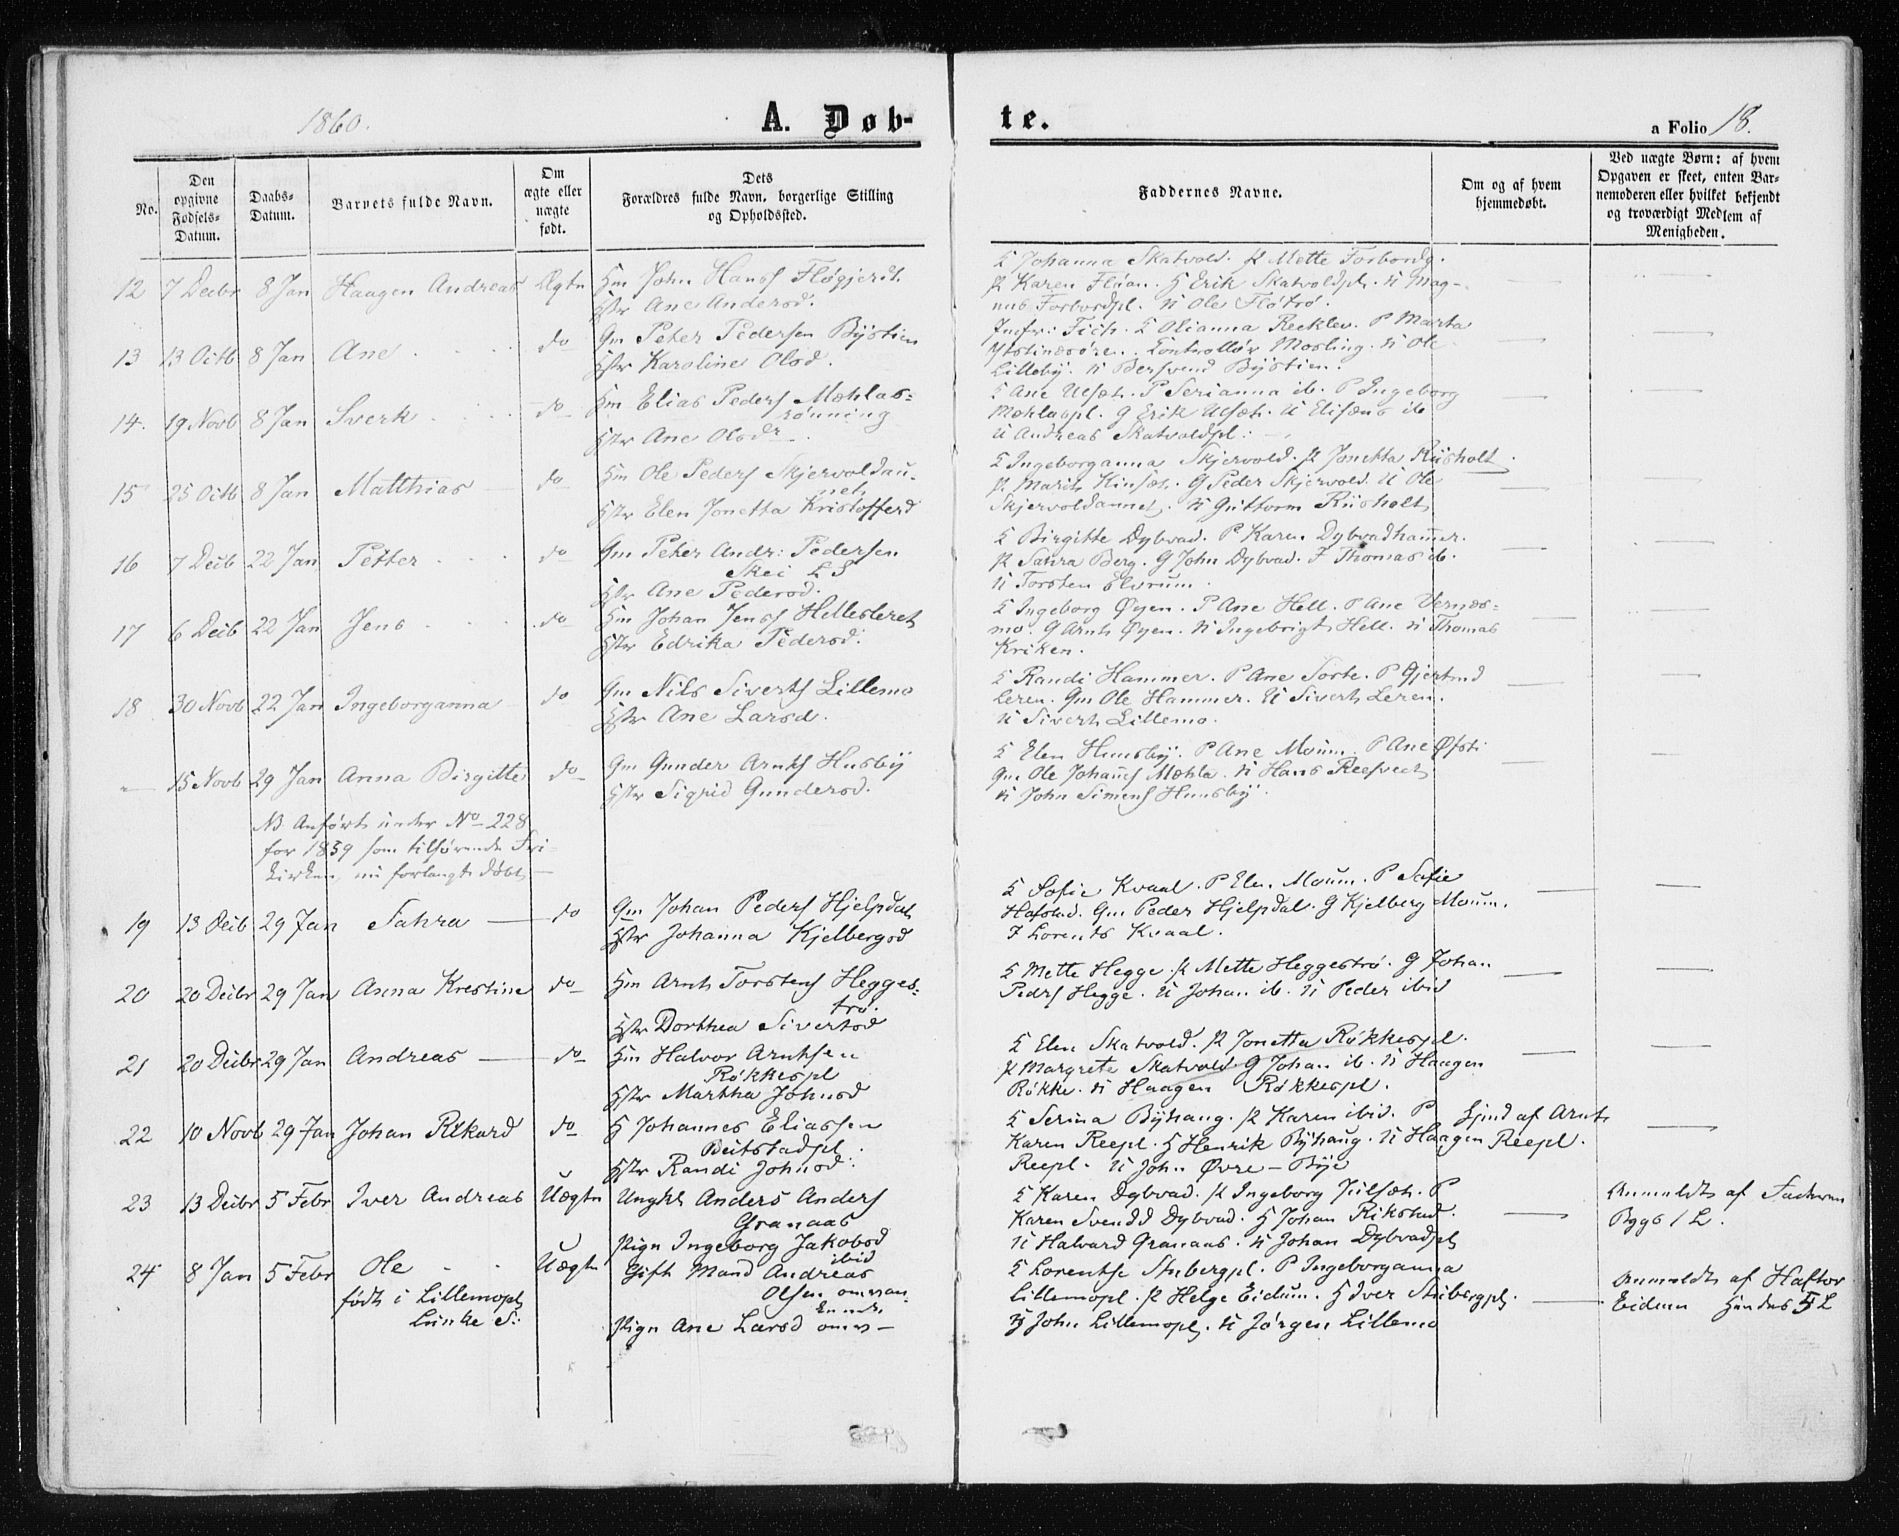 1860.
A. Døb-
te.
a Folio 18.
No.
Den opgivne Fødsels-Datum.
Daabs-Datum.
Barnets fulde Navn.
Om ægte eller uægte født.
Dets Forældres fulde Navn, borgerlige Stilling og Opholdssted.
Faddernes Navne.
Om og af hvem hjemmedøbt.
Ved uægte Børn: af hvem Opgaven er skeet, enten Barnemoderen eller hvilket bekjendt og troværdigt Medlem af Menigheden.
12 7 Decbr 8 Jan Haagen Andreas Ægte Hm John Hans Fløgjerdt
Hstr Ane Andersd.
K Johanna Skatvold. P Mette Forbordg.
P Karen Flöan. G Erik Skatvoldpl. U Mag-
nus Forbordpl. U Ole Fløtrø.
13 13 Octb 8 Jan Ane do Gm Peter Pedersen Bÿstien
Hstr Karoline Olsd.
Jmfr: Fich. K Olianna Reeklev. P Marta
Ystinesören. Controllör Mosling. U Ole
Lilleby. U Bersvend Bÿstien.
14. 19 Novb 8 Jan Sverk do Hm Elias Peders Mæhlas-
rönning
Hstr Ane Olsdr
K Ane Ulsæt. P Serianna ib. P Ingeborg
Mæhlaspl. G Erik Ulsæt. U Elisæus ib
U Andreas Skatvoldpl:
15 25 Octb 8 Jan Matthias do Hm Ole Peders Skjervoldau-
net
Hstr Elen Jonetta Kristofferd
K Ingeborganna Skjervold. P Jonetta Riisholt.
P Marit Kinset. G Peder Skjervold. U Ole
Skjervoldaunet. U Guttorm Riisholt
16 7 Decb 22 Jan Petter do Gm Peter Andr: Pedersen
Skei L S
Hstr Ane Pedersd.
K Birgitte Dybvad. P Karen Dybvadham̄er.
P Sahra Berg. G John Dybvad. F Thomas ib.
U Torsten Elvrum.
17 6 Decb 22 Jan Jens do Hm Johan Jens Hellesteret
Hstr Edrika Pedersd.
K Ingeborg Øyen. P Ane Hell. P Ane Vernæs-
mo. G Arnt Øyen. U Ingebrigt Hell. U Thomas
Kriken.
18 30 Novb 22 Jan Ingeborganna do Gm Nils Siverts Lillemo
Hstr Ane Larsd.
K Randi Hammer. P Ane Sorte. P Gjertrud
Leren. Gm Ole Hammer. U Sivert Leren.
U Sivert Lillemo.
15 Novb 29 Jan Anna Birgitte do Gm Gunder Arnts Husbÿ
Hstr Sigrid Gundersd.
K Elen Huusbÿ. P Ane Moum. P Ane Øfsti
Gm Ole Johan̄s Mæhla. U Hans Reesveet
U John Simens Huusbÿ.
NB Anført under No 228
for 1859 som tilhørende Fri-
kirken, nu forlangt døbt
19 13 Decb 29 Jan Sahra do Gm Johan Peders Hjelpdal
Hstr Johanna Kjelbergsd
K Sofie Kvaal. P Elen Moum. P Sofie
Hafstad. Gm Peder Hjelpdal. G Kjelberg Moum.
F Lorents Kvaal.
20 20 Decbr 29 Jan Anna Krestine do Hm Arnt Torstens Hegges-
trø.
Hstr Dorthea Sivertsd
K Mette Hegge. P Mette Heggestrø. G Johan
Peders Hegge. U Johan ib. U Peder ibid
21 20 Decbr 29 Jan Andreas do Hm Halvor Arntsen
Røkkespl
Hstr Martha Johnsd
K Elen Skatvold. P Jonetta Røkkespl.
P Margrete Skatvold. G Johan ib. U Haagen
Røkke. U Haagen Røkkespl.
22 10 Novb 29 Jan Johan Rikard do H Johannes Eliassen
Beitstadpl.
Hstr Randi Johnsd.
K Serina Bÿhaug. P Karen ibid. P
Karen Reepl. H Henrik Bÿhaug. U Haagen
Reepl. U John Øvre-Bÿe
Hjmd af Arnt
Reepl.
23 13 Decbr 5 Febr Iver Andreas Uægte Ungkl Anders Anders
Granaas
Pige Ingeborg Jakobsd
ibid
K Karen Dybvad. P Ingeborg Julset. P
Karen Svendd Dybvad. H Johan Rikstad.
U Halvard Granaas. U Johan Dybvadpl
Anmeldt af Faderen
Bygs 1 L.
24 8 Jan 5 Febr Ole Uægte Gift Mand Andreas
Olsen omvan-
kende
født i Lillemopl
Lunke S.
Pige Ane Larsd omv-
K Lorentse Stubergpl. P Ingeborganna
Lillemopl. P Helge Eidum. H Iver Stubergpl.
H John Lillemopl. U Jørgen Lillemo
Anmeldt af Haftor
Eidum 5 L